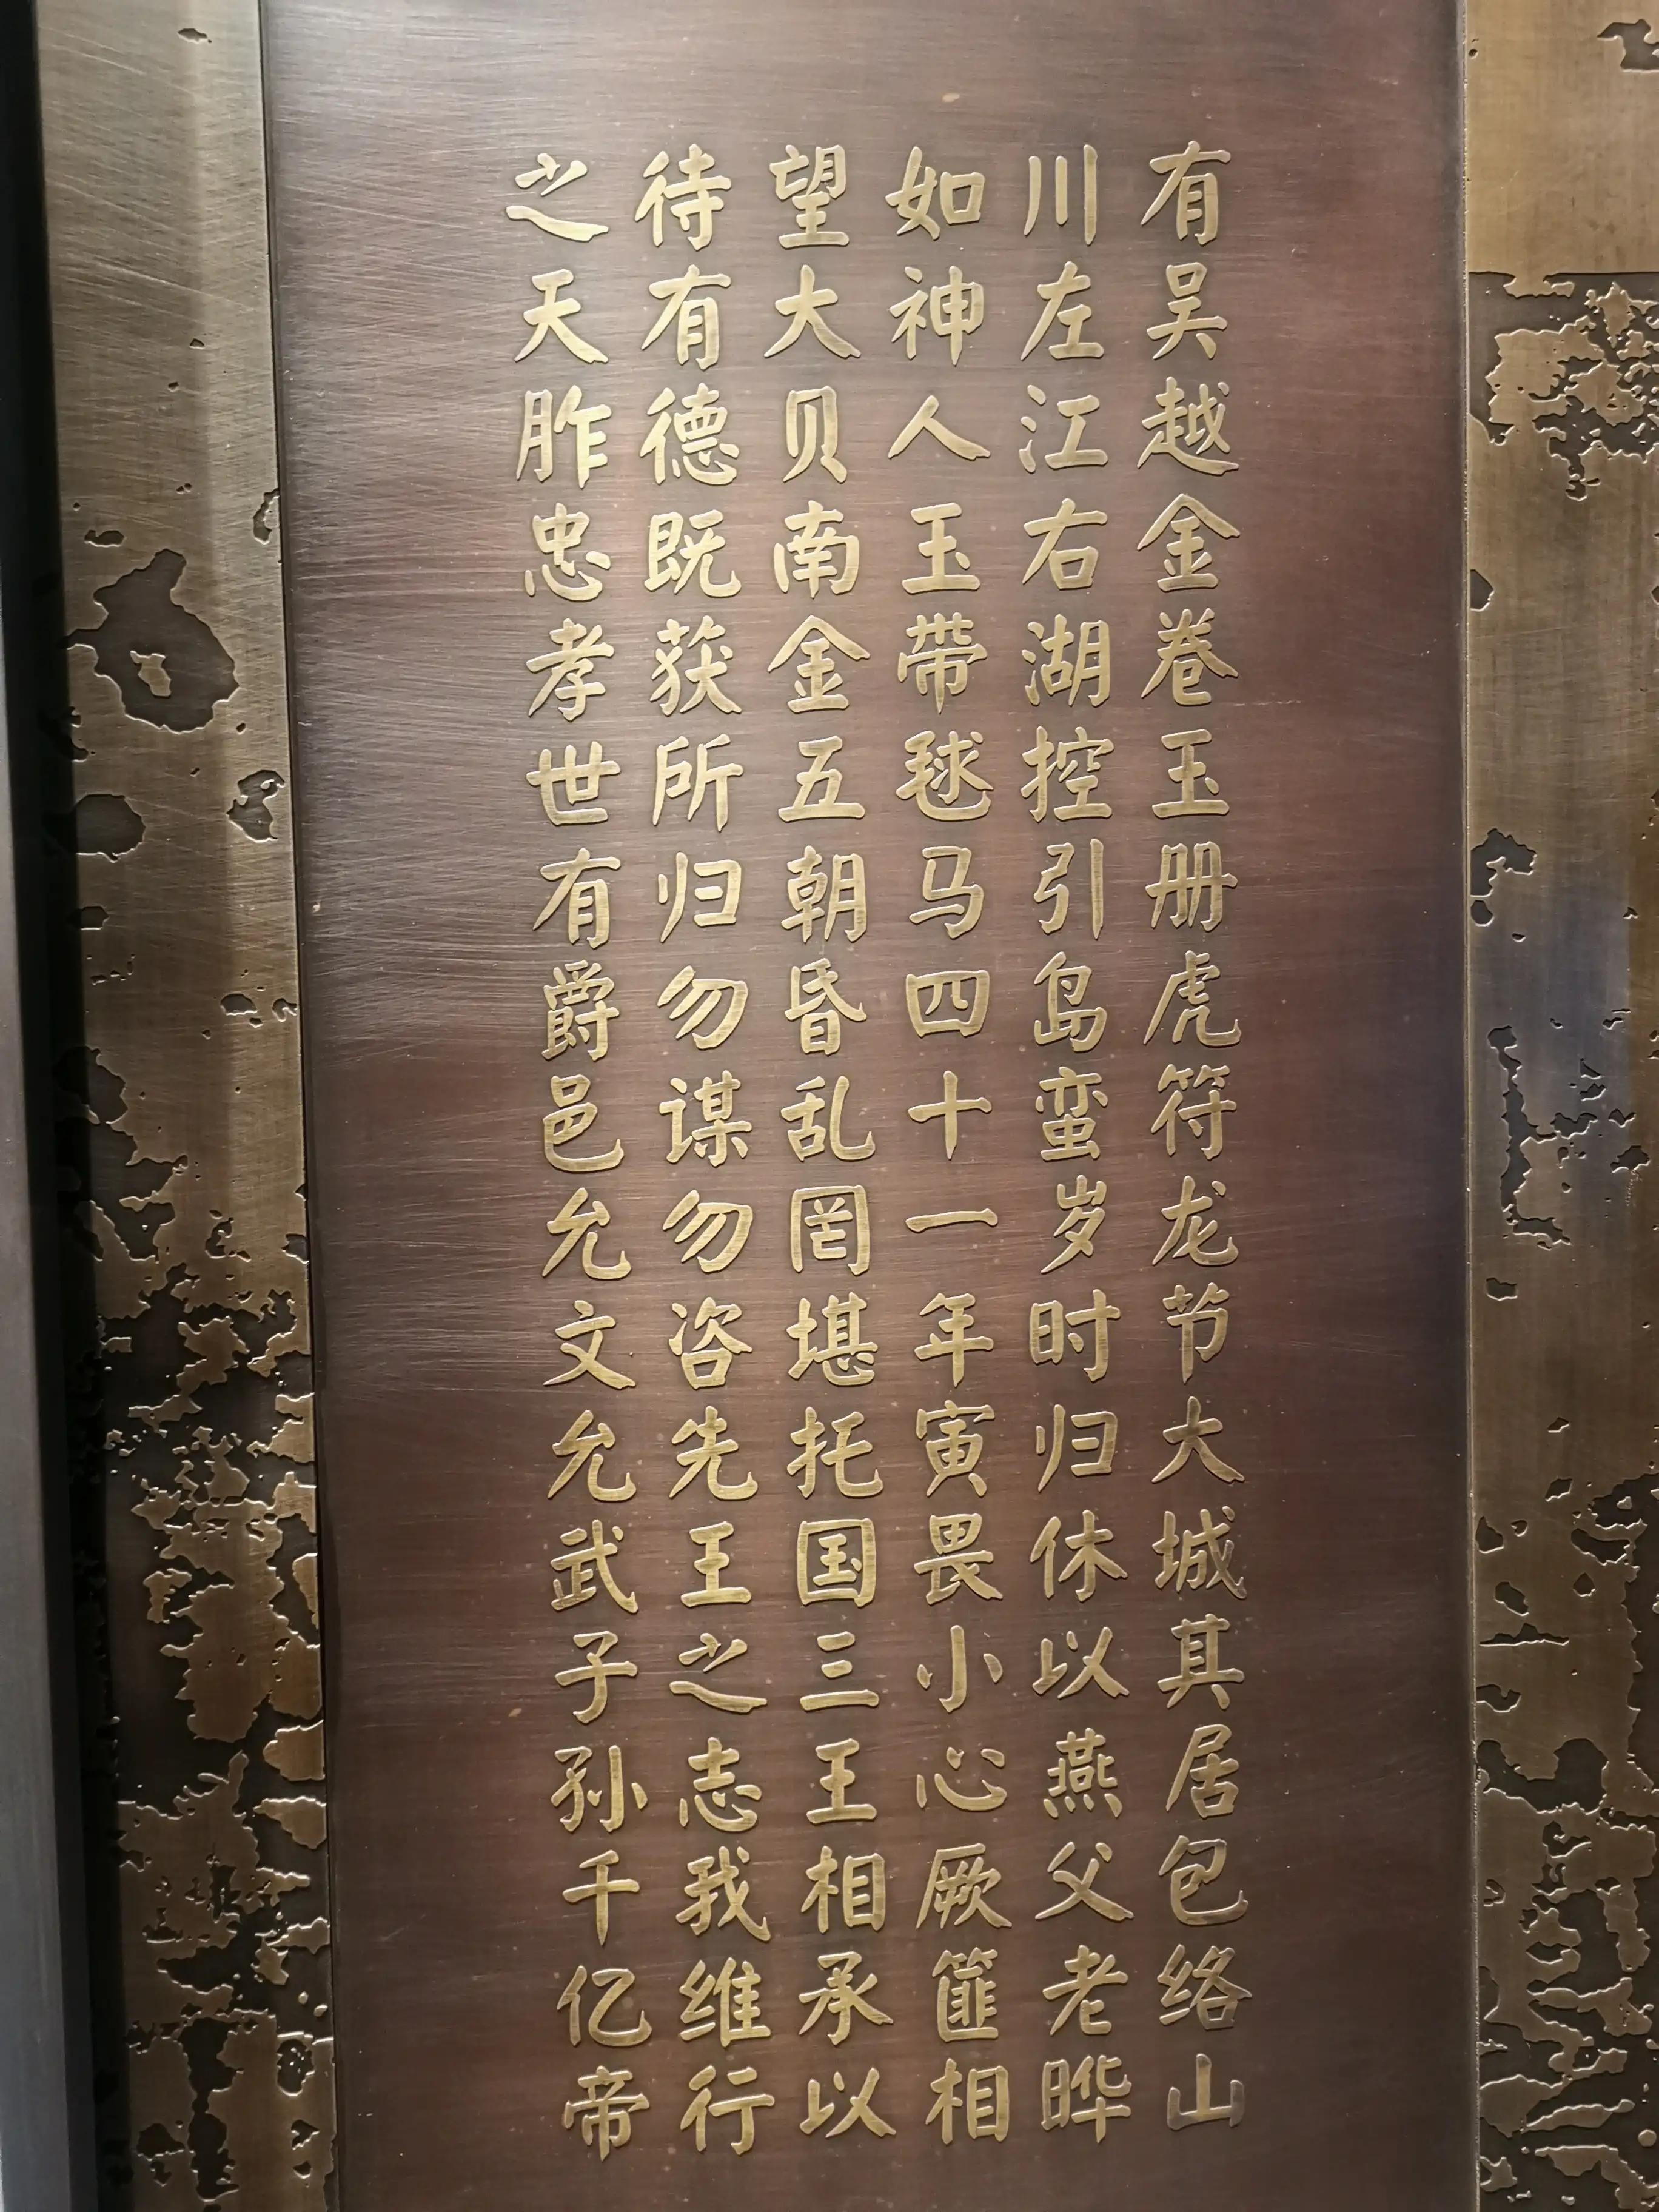 有吴越金卷玉册虎符龙节大城其居包络山
川左江右湖控引岛蛮岁时归休以燕父老晔
如神人玉带毬马四十一年寅畏小心厥篚相
望大贝南金五朝昏乱罔堪托国三王相承以
待有德既获所归勿谋勿咨先王之志我维行
之天胙忠孝世有爵邑允文允武子孙千亿帝